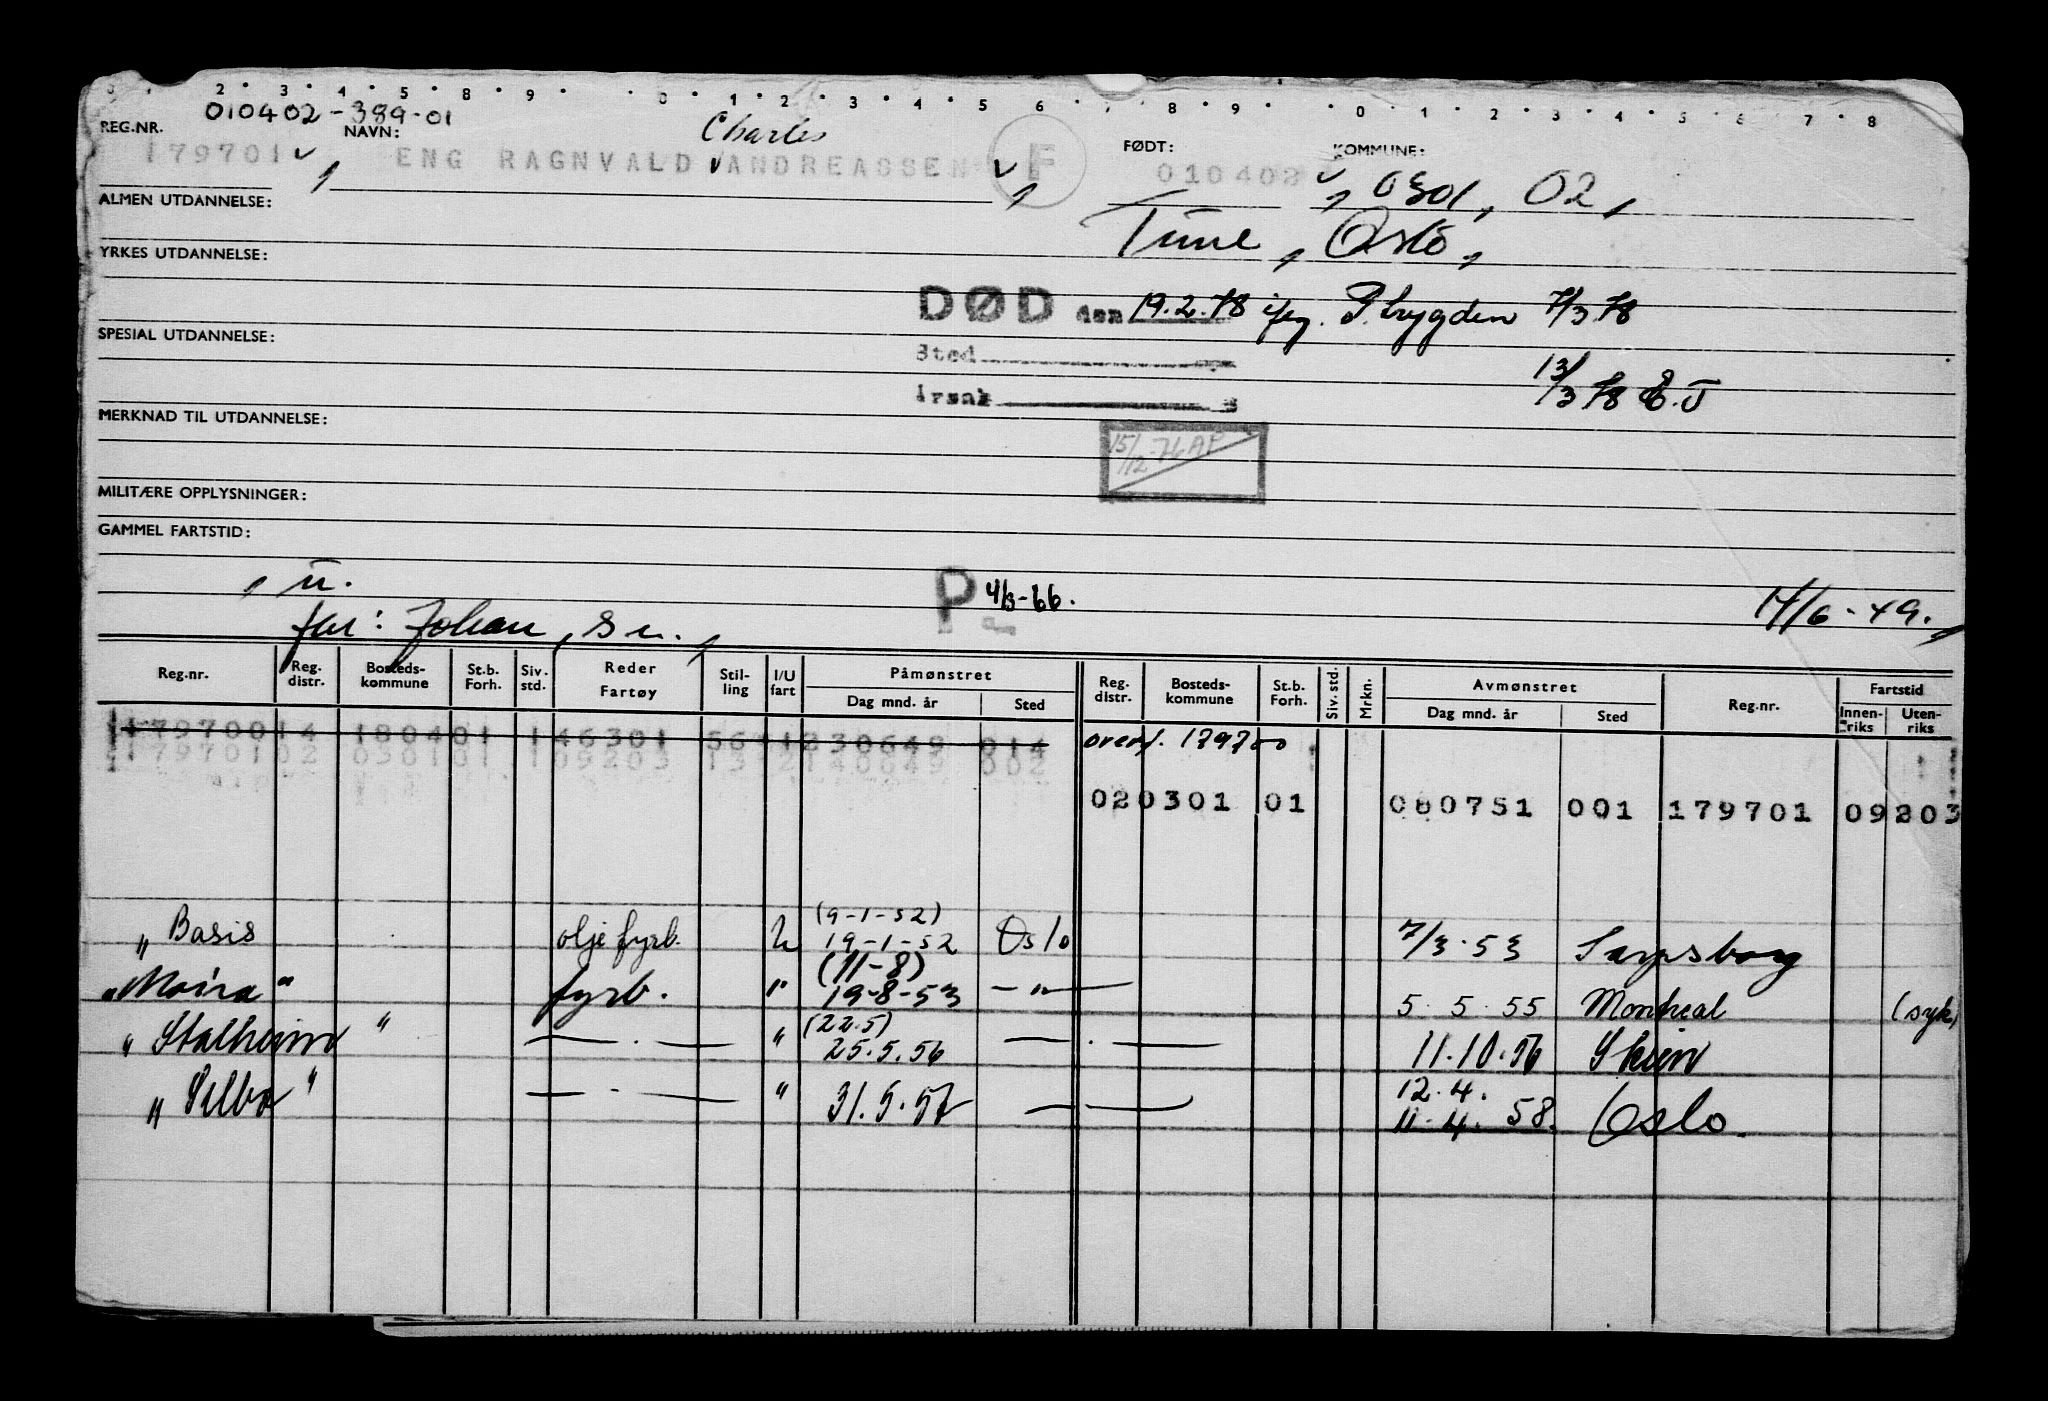 2 3 4 5 8 9 0 1 2 3 4 5 6 7 8 9 0 1 2 3 4 5 6 7 8
010402-389-01
REG.NR. NAVN: Charles FØDT: KOMMUNE:
179701 ENG RAGNVALD ANDREASSEN F 010402 0301, 02,
ALMEN UTDANNELSE:
Tune, Oslo,
YRKES UTDANNELSE:
DØD den 19.2.78 iflg. P.trygden 7/3 78
SPESIAL UTDANNELSE:
Sted
13/3 78 E.J
Årsak
MERKNAD TIL UTDANNELSE:
15/12-76 AP
MILITÆRE OPPLYSNINGER:
GAMMEL FARTSTID:
, u.
P 4/3-66.
17/6-49.,
far: Johan, sn.,
Reg.nr. Reg. distr. Bosteds-kommune St.b. Forh. Siv. std. Reder Fartøy Stil-ling I/U fart Påmønstret Dag mnd. år Sted Reg. distr. Bosteds-kommune St.b. Forh. Siv. std. Mrkn. Avmønstret Dag mnd. år Sted Reg.nr. Fartstid Innen-riks Uten-riks
17970014 180401 146301 5641230649 014 overf. 179700
17970102 030101 109203 1312140649 002
020301 01 080751 001 179701 09203
„ Basis olje fyrb. U (9-1-52) 19-1-52 Oslo 7/3.53 Sarpsborg
„Moira" fyrb. " (11-8) 19-8-53 — " — 5.5.55 Montreal (syk)
„ Stalheim " — . — " (22.5) 25.5.56 — . — 11.10.56 Skien
„ Silba " — - — " 31.5.57 — - — 12.4. 11.4. 58. Oslo.